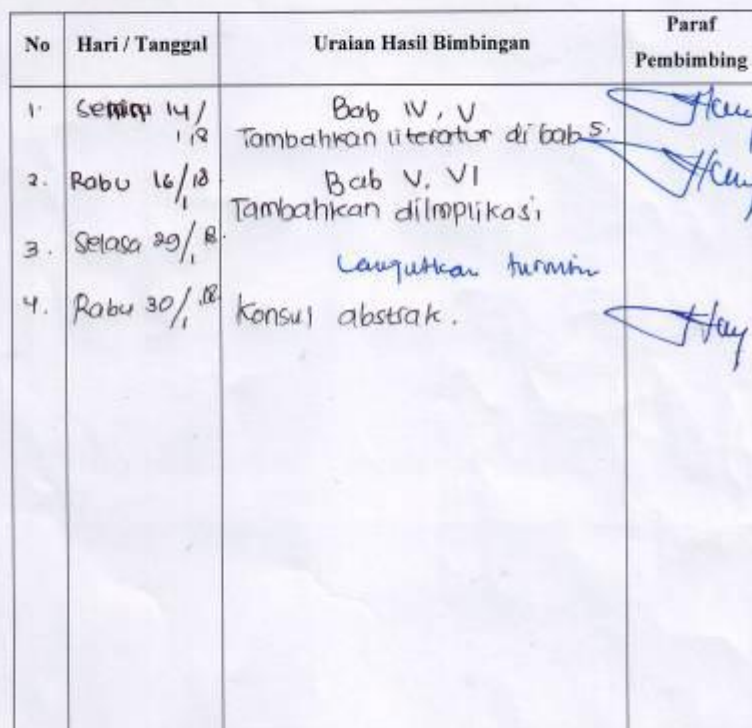 No Hari / Tanggal Uraian Hasil Bimbingan Paraf Pembimbing
1. 14/1 18 Bab IV, V
Tambahkan literatur di bab 5.
2. Rabu 16/1 18 Bab V, VI
Tambahkan diimplikasi
3. Selasa 29/1 18.
4. Rabu 30/1 18 Konsul abstrak.